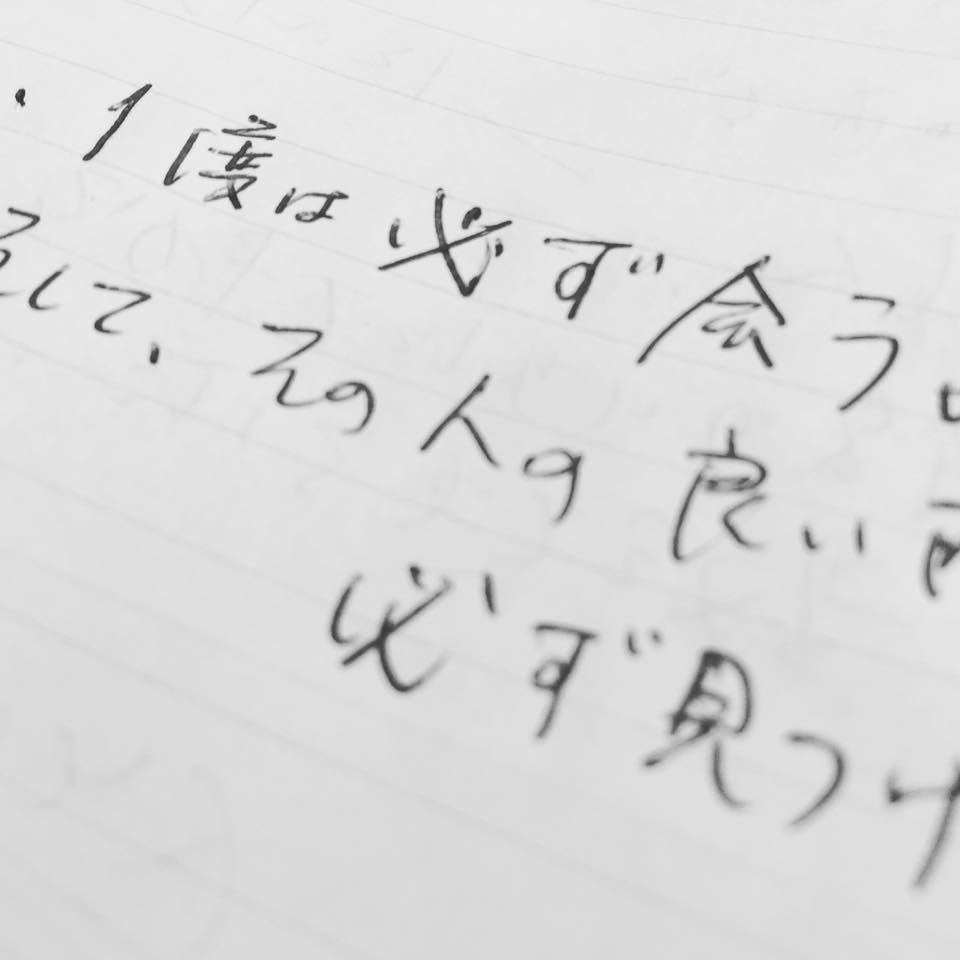 ・1度は必ず会う
そして、その人の良い
必ず見つけ